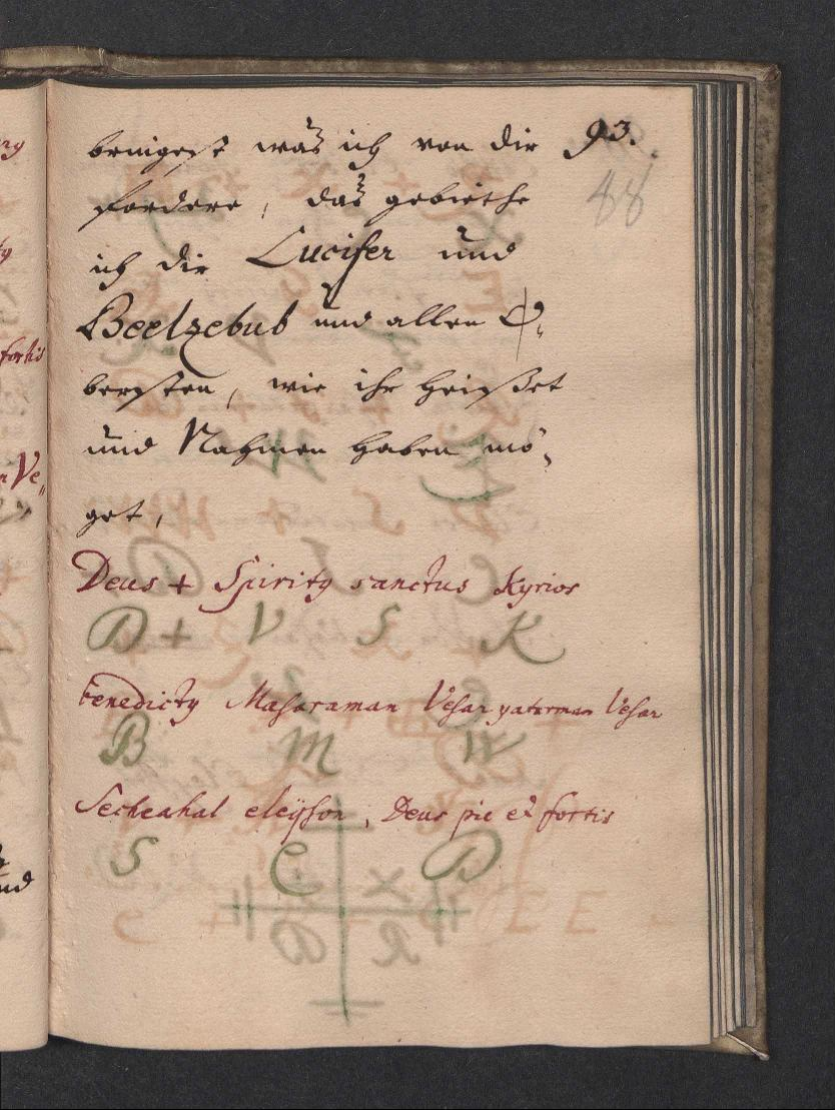 bringest was ich von dir 93.
88
fordere, das gebiethe
ich dir Lucifer und
Beelzebub und allen O,,
bersten, wie ihr heisset
und Nahmen haben mö,,
get,
Deus + Spirity sanctus Kyrios
D + V S K
benedicty Masaraman Vesar yaterman Vesar
B M W
Secheahal eleÿson, Deus pie et fortis
S E D